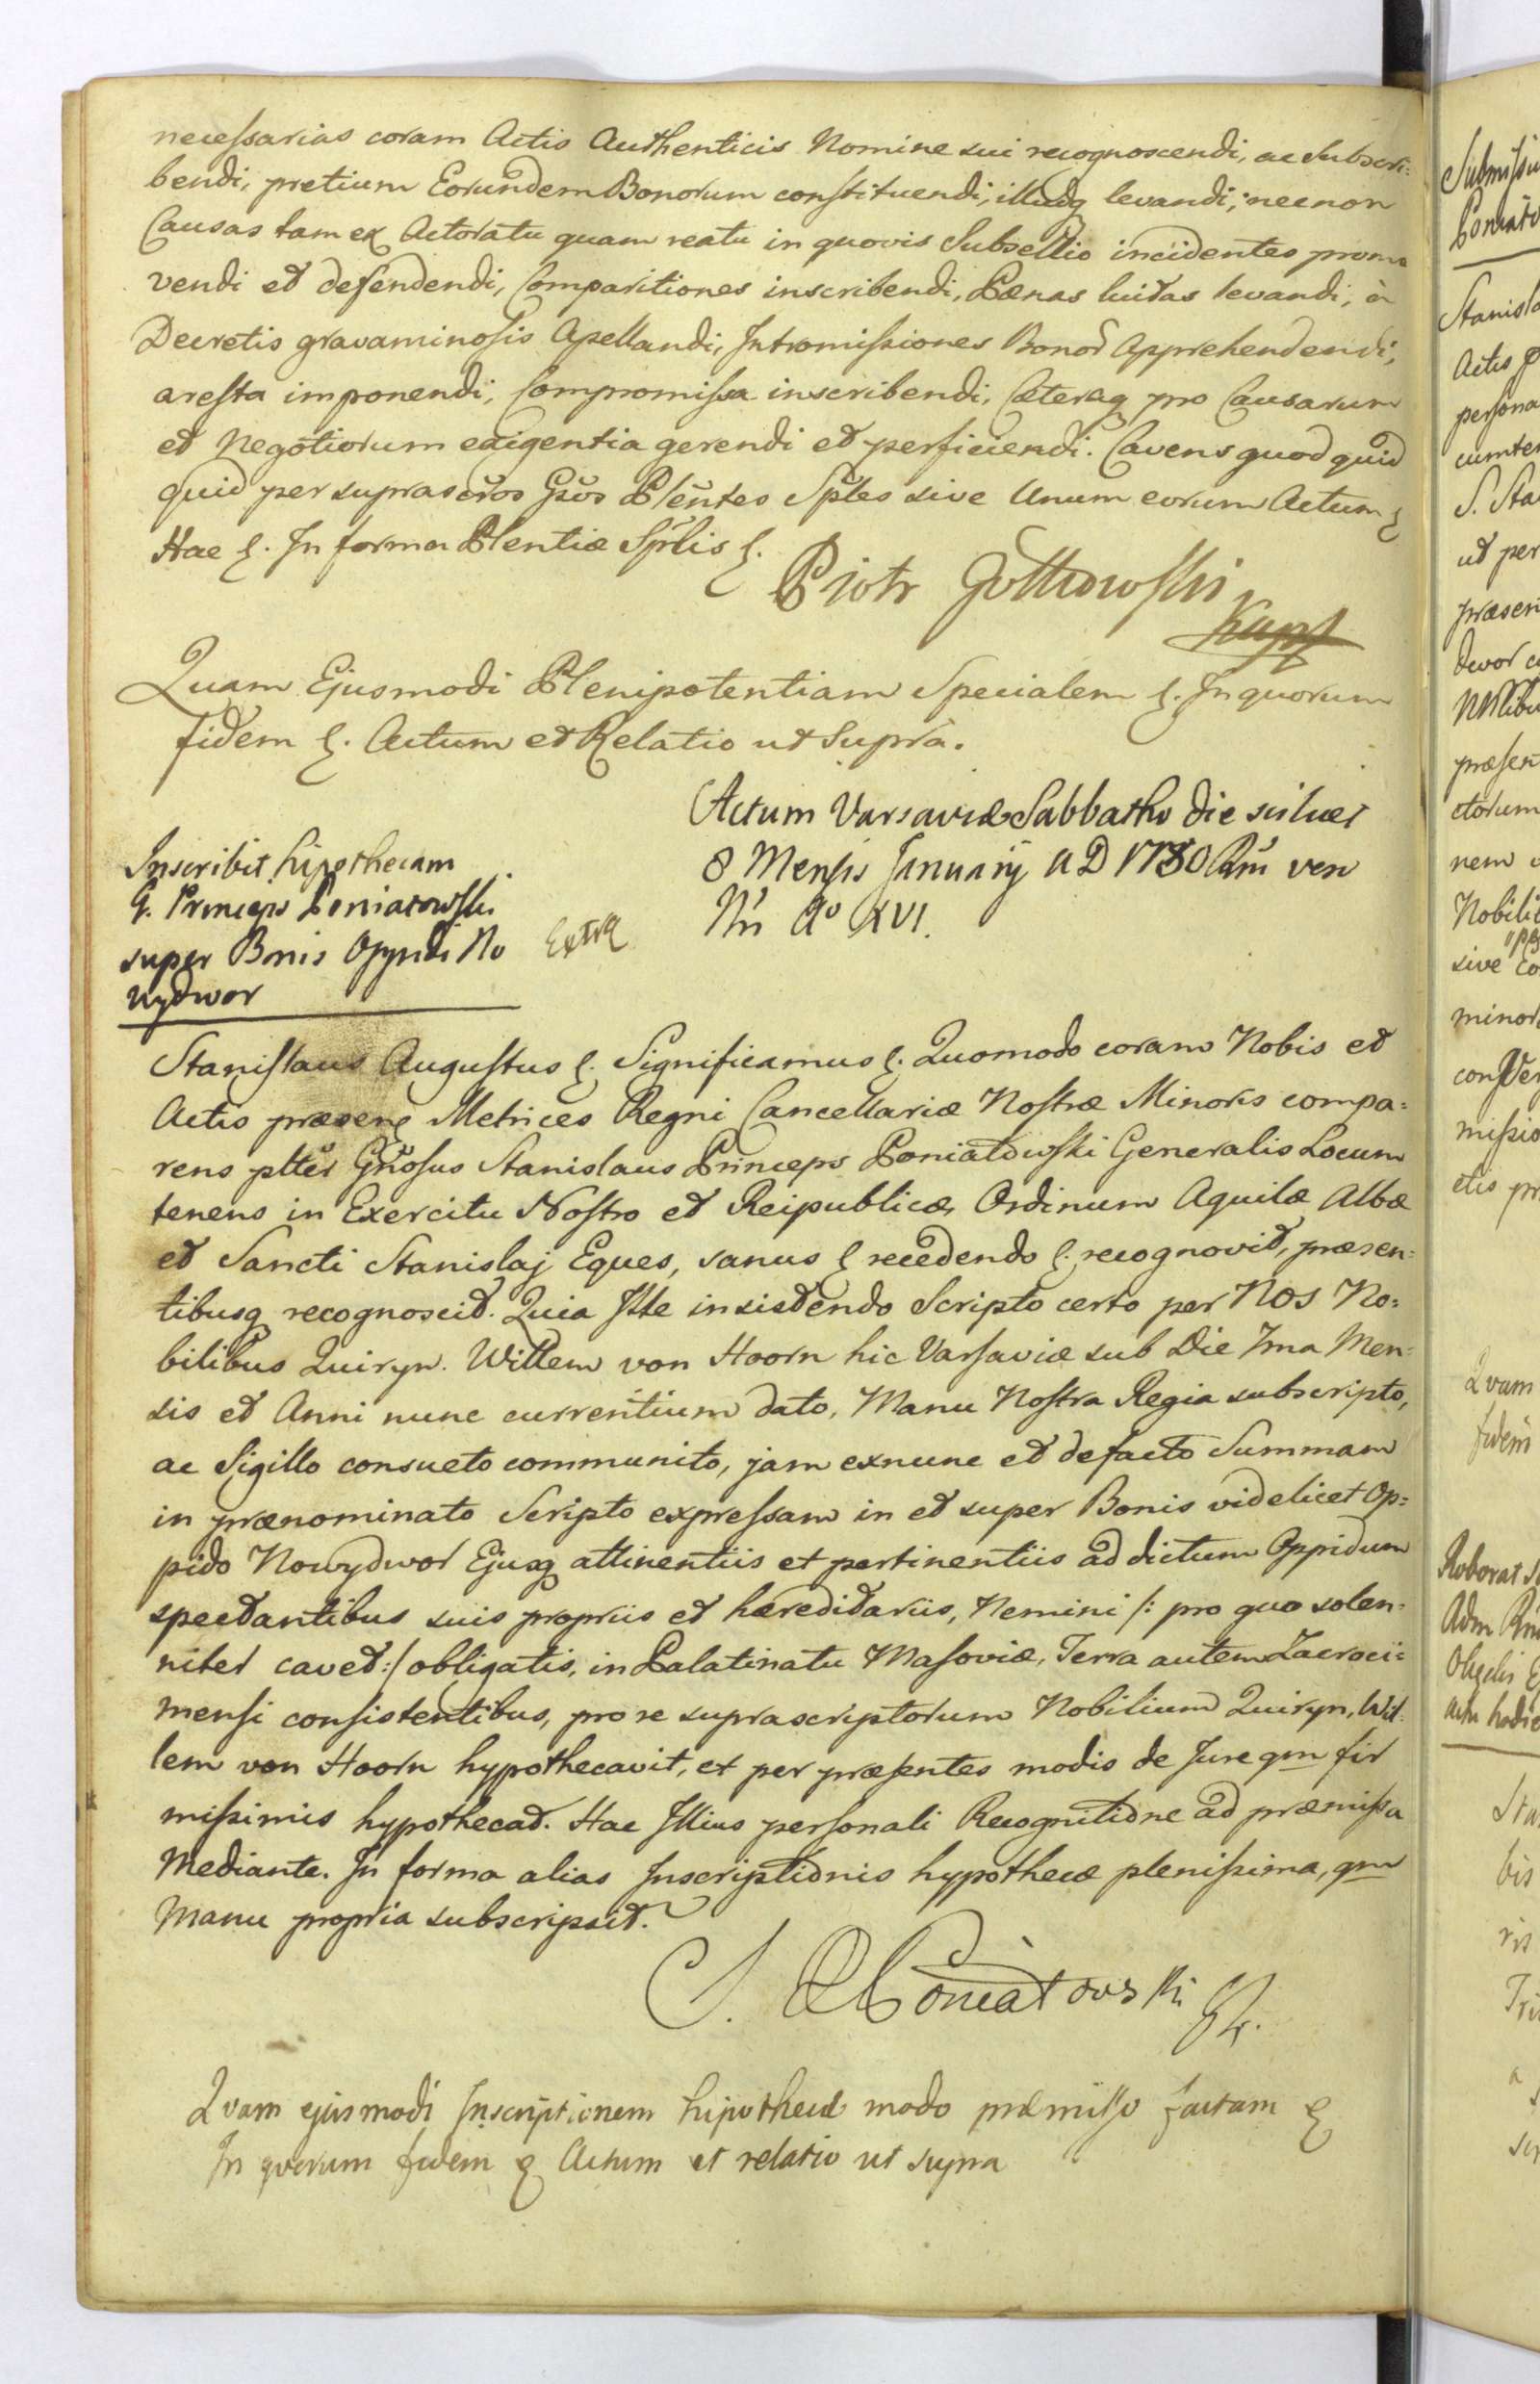 necessarias coram Actis Authenticis Nomine sui recognoscendi, ac Subscri:
bendi, pretium Eorundem Bonorum constituendi, illudq levandi, necnon
Causas tam ex Actoratu quam reatu in quovis Subsellio incidentes promo
vendi et defendendi, Comparitiones inscribendi, Pænas luitas levandi, à
Decretis gravaminosis Apellandi, Intromissiones Bonor Apprehendendi,
aresta imponendi, Compromissa inscribendi, Cæteraq pro Causarum
et Negotiorum exigentia gerendi et perficiendi. Cavens quod quid
quid per suprascros Gsos Plentes Sples sive Unum eorum Actum
Hac &. In forma Plentiæ Splis &.
Piotr
Quam Ejusmodi Plenipotentiam Specialem &. In quorum
fidem &. Actum et Relatio ut Supra.
Actum Varsaviæ Sabbatho die scilicet
8 Mensis Januarij A D 1780 Rni vero
Nri Ao XVI.
Inscribit hipothecam
G. Princeps Poniatowski
super Bonis Opyndi No
wydwor
Extra
Stanislaus Augustus &. Significamus &. Quomodo coram Nobis et
Actis præsens Metrices Regni Cancellariæ Nostræ Minoris compa:
rens plter Gnosus Stanislaus Princeps Poniatowski Generalis Locum
tenens in Exercitu Nostro et Reipublicæ, Ordinum Aquilæ Albæ
et Sancti Stanislaj Eques, sanus & recedendo &. recognovit, præsen:
tibusq recognoscit. Quia Ille insistendo Scripto certo per NOS No:
bilibus Quiryn. Willem von Hoorn hic Varsaviæ sub Die 7ma Men:
sis et Anni nunc currentium dato, Manu Nostra Regia subscripto,
ac Sigillo consueto communito, jam exnunc et defacto Summam
in prænominato Scripto expressam in et super Bonis videlicet Op:
pido Nowydwor Ejusq attinentiis et pertinentiis ad dictum Oppidum
spectantibus suis propriis et hæreditariis, Nemini /: pro quo solen:
niter cavet :/ obligatis, in Palatinatu Masoviæ, Terra autem Zacroci:
mensi consistentibus, pro re suprascriptorum Nobilium Quiryn, Wil:
lem von Hoorn hypothecavit, et per præsentes modis de Jure qm fir
missimis hypothecat. Hac Illius personali Recognitione ad præmissa
Mediante. In forma alias Inscriptionis hypothecæ plenissima, qm
Manu propria subscripsit.
S. P Poniatowski
Qvam ejusmodi Inscriptionem hipothecæ modo præmisso factam &
In qvorum fidem & Actum et relatio ut supra